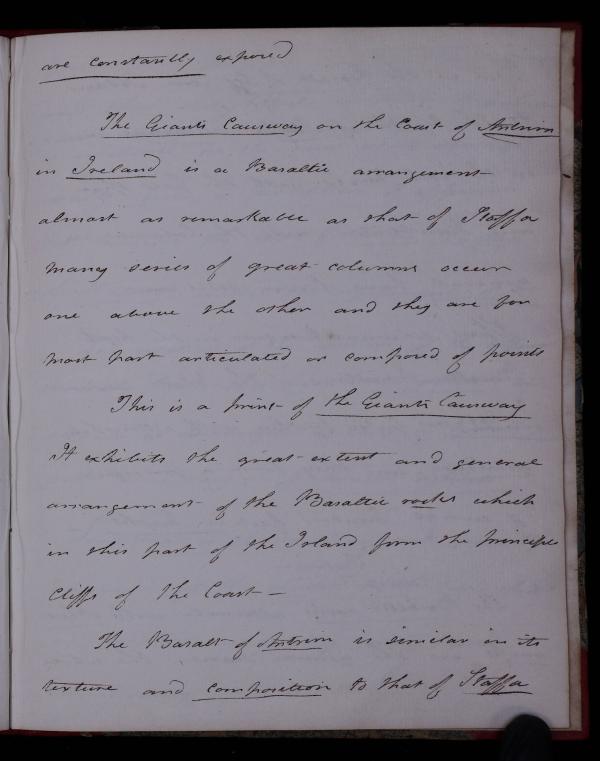 are constantly exposed
The Giants Causeway on the Coast of Antrim
in Ireland is a Basaltic arrangement
almost as remarkable as that of Staffa
many series of great columns occur
one above the other and they are for
most part articulated or composed of points
This is a print of the Giants Causeway
It exhibits the great extent and general
arrangement of the Basaltic rocks which
in this part of the Island form the principle
Cliffs of the Coast —
The Basalt of Antrim is similar in its
texture and composition to that of Staffa